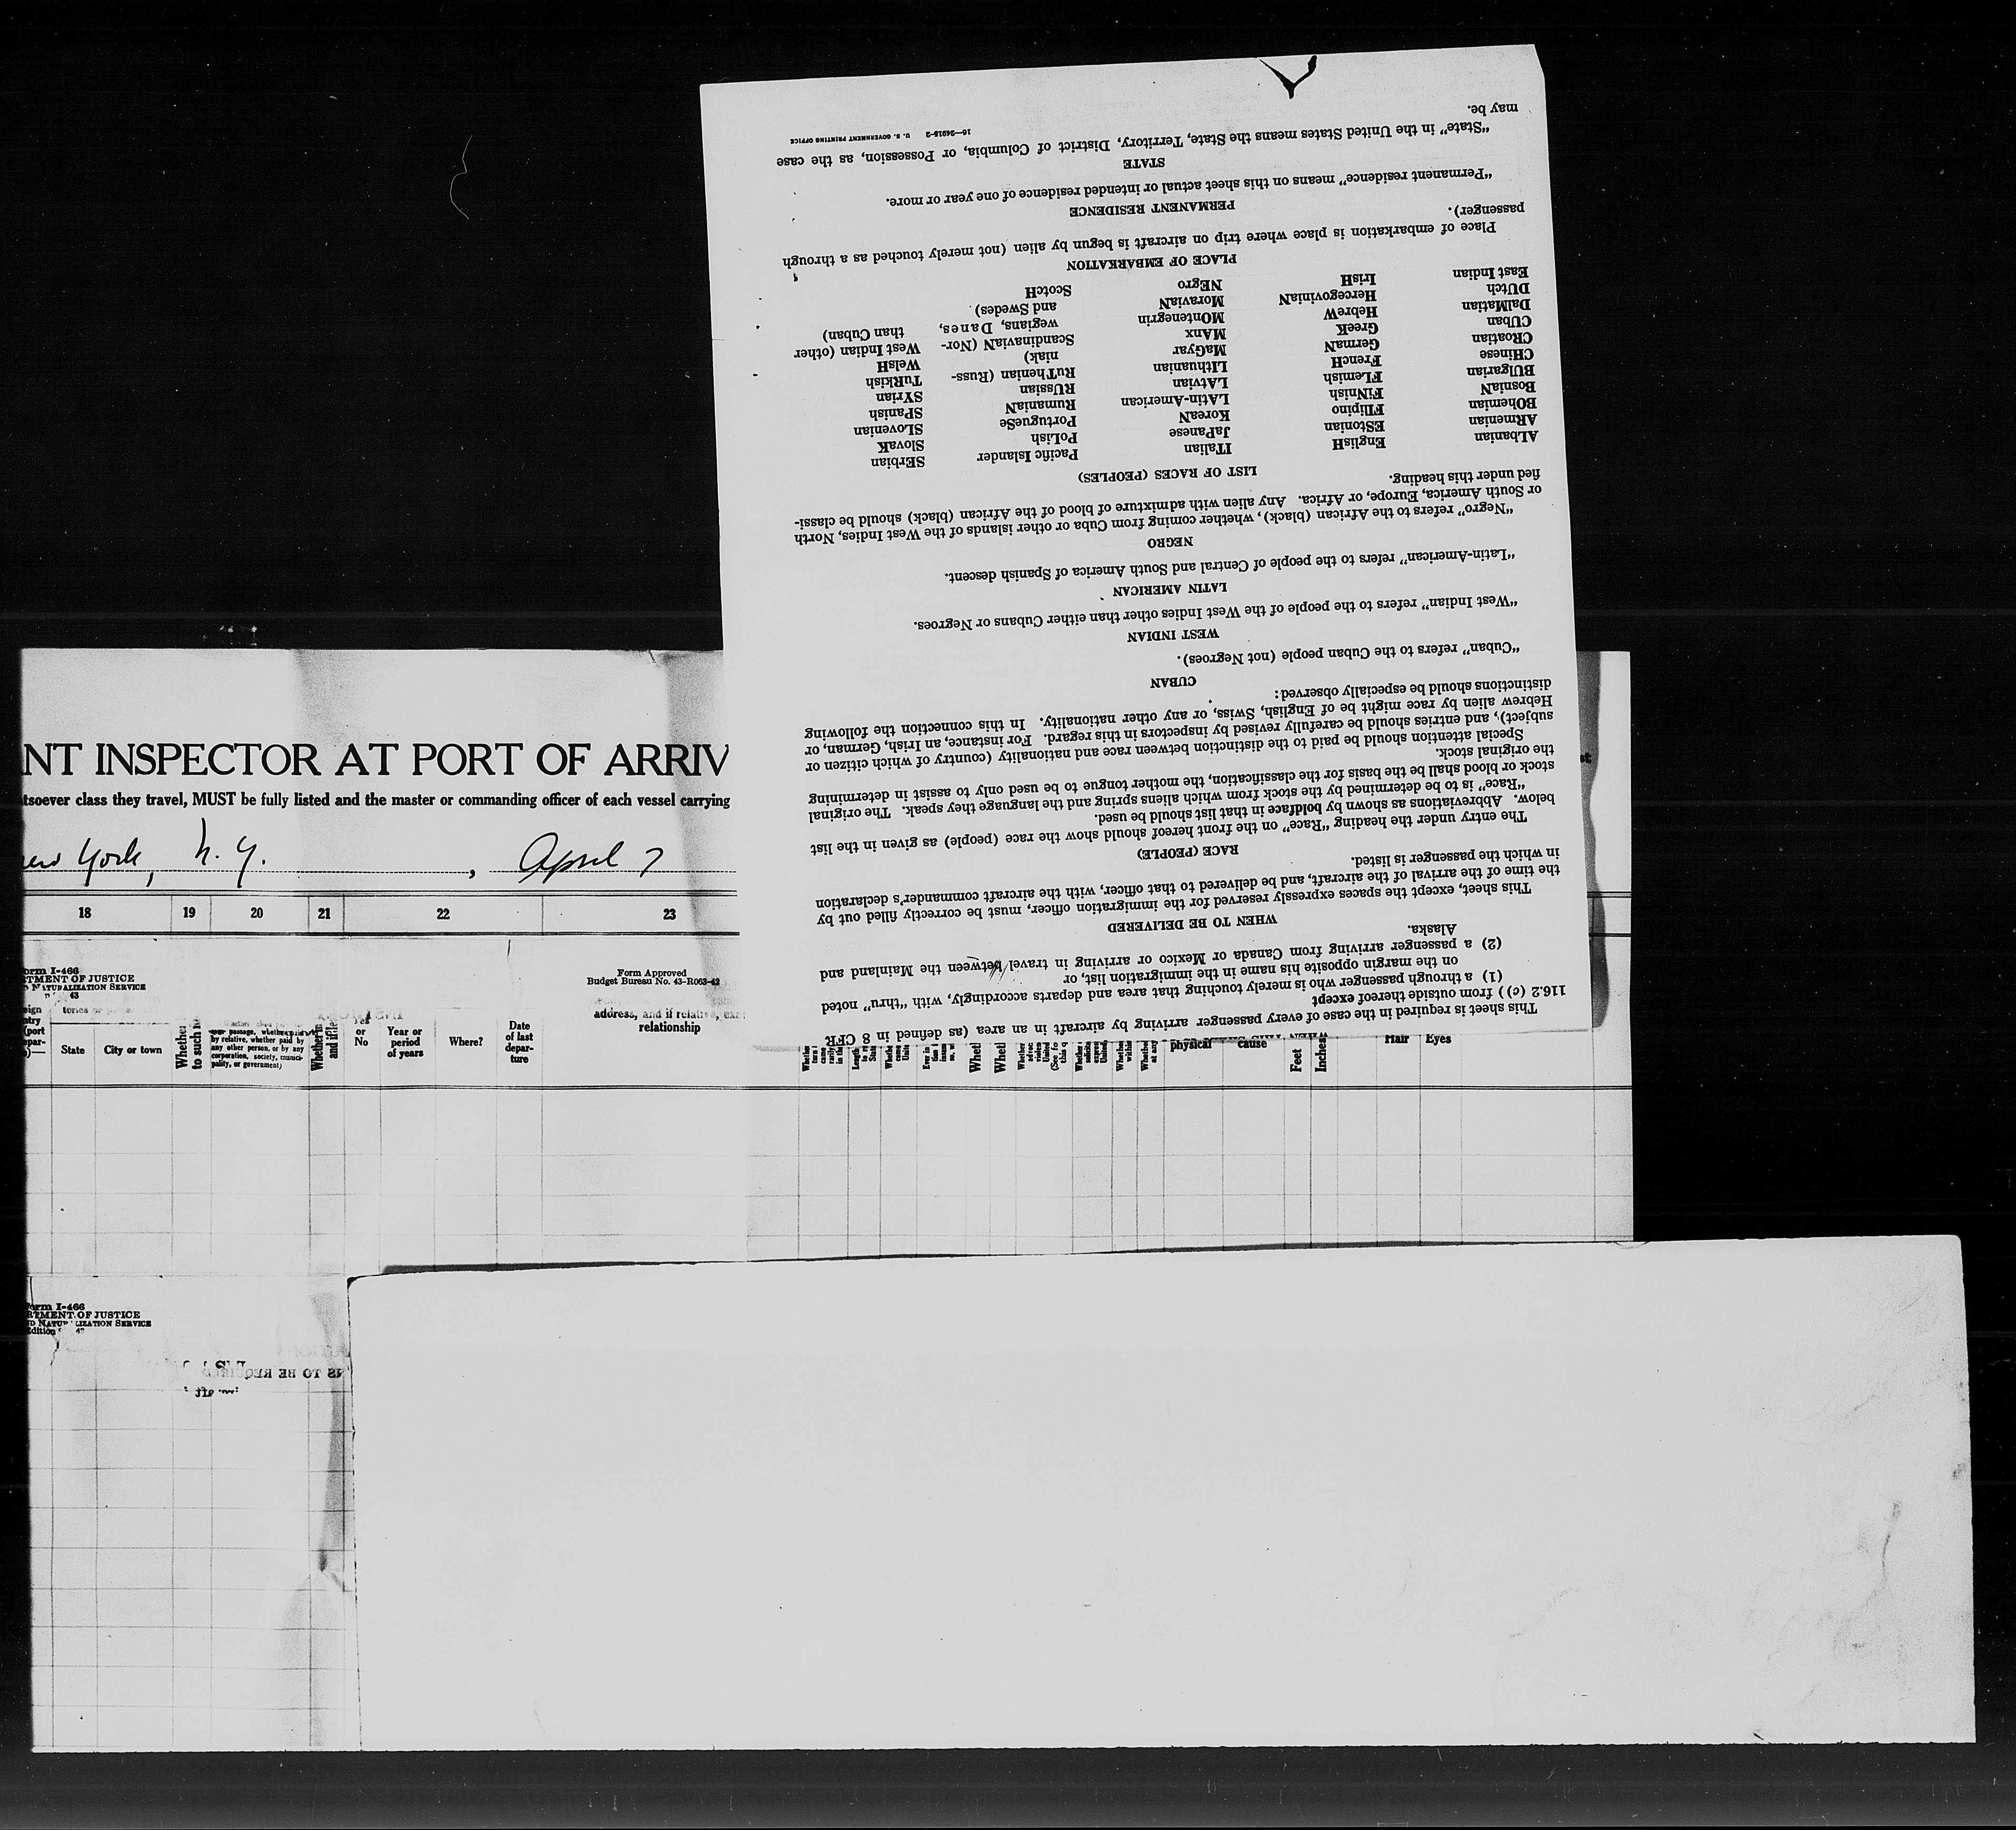 NT INSPECTOR AT PORT OF ARRIV
tsoever class they travel, MUST be fully listed and the master or commanding officer of each vessel carrying
New York, N. Y. , April 7
18 19 20 21 22 23
Form I-466
TMENT OF JUSTICE
NATURALIZATION SERVICE
43
Form Approved
Budget Bureau No. 43-R063-42
address, and if relative, exa
relationship
State
City or town
Whether
to such
passage, whether
by relative, whether paid by
any other person, or by any
corporation, society, munici-
pality, or government)
Whether
and if
or
No
Year or
period
of years
Where?
Date
of last
depar-
ture
physical
cause
Feet
Inches
Hair
Eyes
Form I-466
RTMENT OF JUSTICE
NATURALIZATION SERVICE
Edition
NS TO BE REQUIRED
This sheet is required in the case of every passenger arriving by aircraft in an area (as defined in 8 CFR
116.2 (c)) from outside thereof except
(1) a through passenger who is merely touching that area and departs accordingly, with "thru" noted
on the margin opposite his name in the immigration list, or
(2) a passenger arriving from Canada or Mexico or arriving in travel between the Mainland and
Alaska.
WHEN TO BE DELIVERED
This sheet, except the spaces expressly reserved for the immigration officer, must be correctly filled out by
the time of the arrival of the aircraft, and be delivered to that officer, with the aircraft commander's declaration
in which the passenger is listed.
RACE (PEOPLE)
The entry under the heading "Race" on the front hereof should show the race (people) as given in the list
below. Abbreviations as shown by boldface in that list should be used.
"Race" is to be determined by the stock from which aliens spring and the language they speak. The original
stock or blood shall be the basis for the classification, the mother tongue to be used only to assist in determining
the original stock.
Special attention should be paid to the distinction between race and nationality (country of which citizen or
subject), and entries should be carefully revised by inspectors in this regard. For instance, an Irish, German, or
Hebrew alien by race might be of English, Swiss, or any other nationality. In this connection the following
distinctions should be especially observed:
CUBAN
"Cuban" refers to the Cuban people (not Negroes).
WEST INDIAN
"West Indian" refers to the people of the West Indies other than either Cubans or Negroes.
LATIN AMERICAN
"Latin-American" refers to the people of Central and South America of Spanish descent.
NEGRO
"Negro" refers to the African (black), whether coming from Cuba or other islands of the West Indies, North
or South America, Europe, or Africa. Any alien with admixture of blood of the African (black) should be classi-
fied under this heading.
LIST OF RACES (PEOPLES)
ALbanian
ARmenian
BOhemian
BosniaN
BUlgarian
CHinese
CRoatian
CUban
DalMatian
DUtch
East Indian
EnglisH
EStonian
FIlipino
FiNnish
FLemish
FrencH
GermaN
GreeK
HebreW
HercegoviniaN
IrisH
ITalian
JaPanese
KoreaN
LAtin-American
LAtvian
LIthuanian
MaGyar
MAnx
MOntenegrin
MoraviaN
NEgro
Pacific Islander
PoLish
PortugueSe
RumaniaN
RUssian
RuThenian (Russ-
niak)
ScandinaviaN (Nor-
wegians, Danes,
and Swedes)
ScotcH
SErbian
SlovaK
SLOvenian
SPanish
SYrian
TuRkish
WelsH
West Indian (other
than Cuban)
PLACE OF EMBARKATION
Place of embarkation is place where trip on aircraft is begun by alien (not merely touched as a through
passenger).
PERMANENT RESIDENCE
"Permanent residence" means on this sheet actual or intended residence of one year or more.
STATE
"State" in the United States means the State, Territory, District of Columbia, or Possession, as the case
may be.
16—24915-2 U. S. GOVERNMENT PRINTING OFFICE